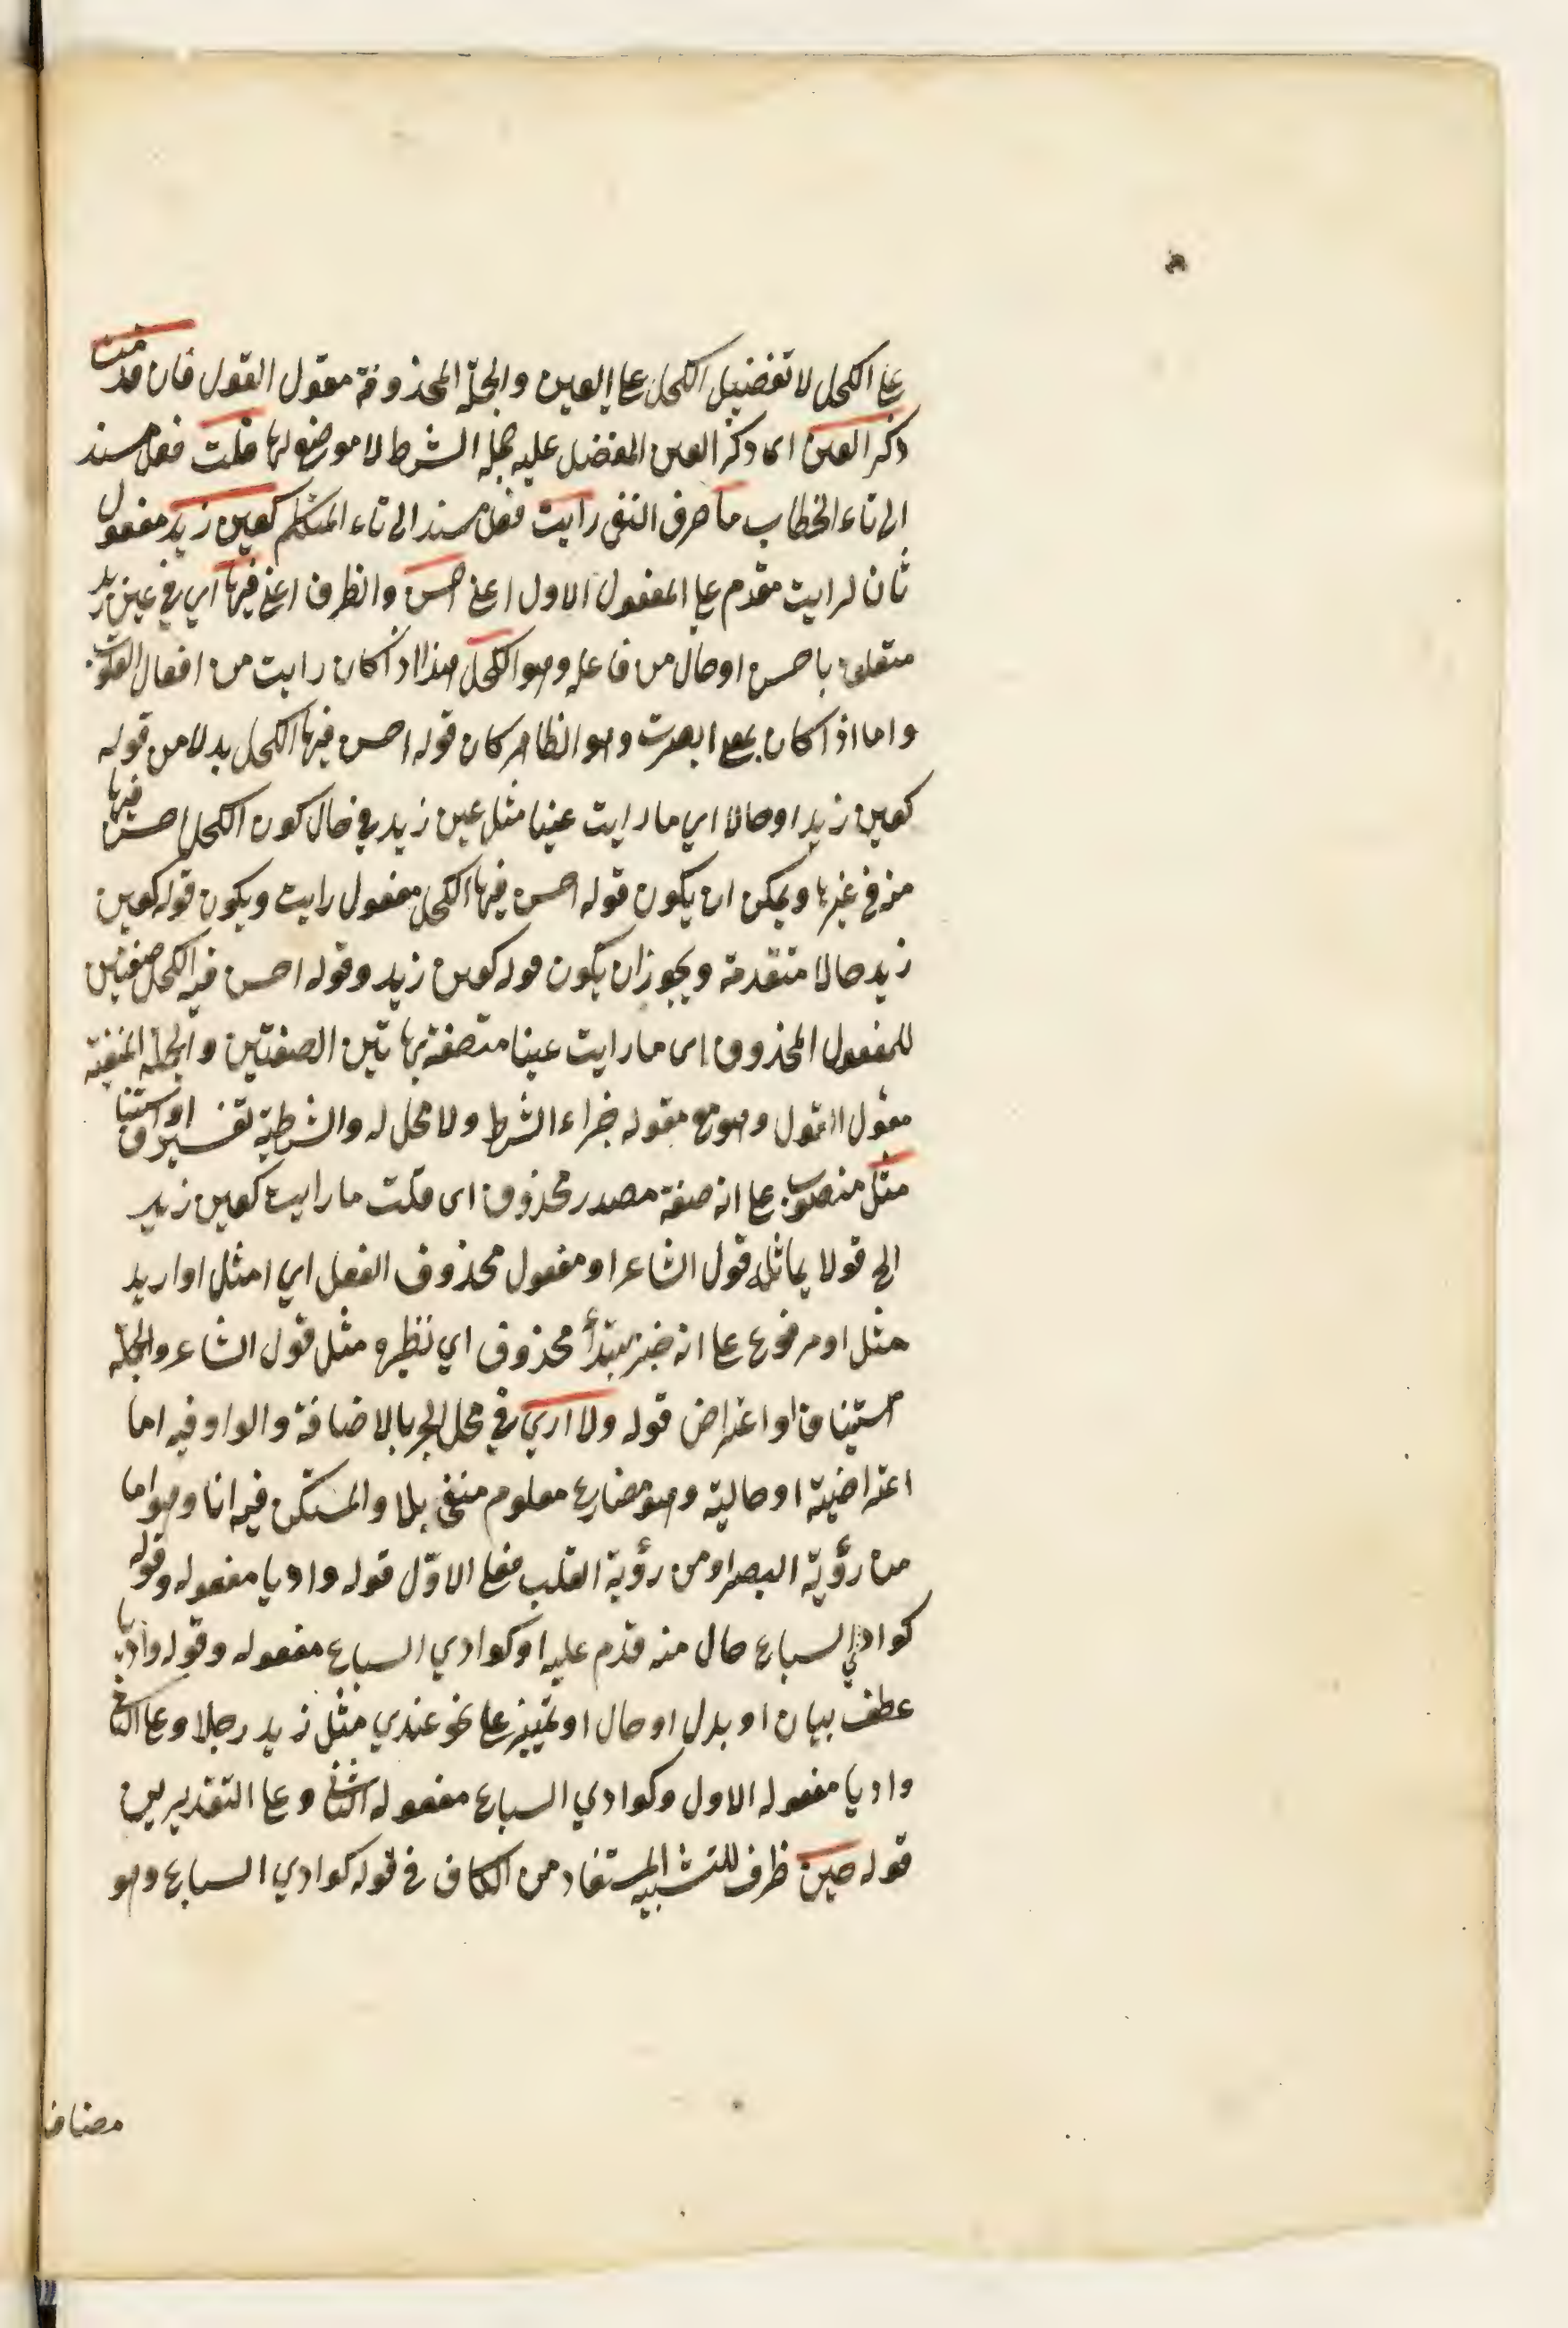 على الكحل لا تفضيل الكحل على العين والجملة المحذوفة مقول القول فان قدمت
ذكر العين اى ذكر العين المفضل عليه جملة الشرط لا موضع لها قلت فعل مسند
الى تاء الخطاب ما حرف النفى رايت فعل مسند الى تاء المتكلم كعين زيد مفعول
ثان لرايت مقدم على المفعول الاول اعنى احسن والظرف اعنى فيها اي في عين زيد
متعلق باحسن او حال من فاعله وهو الكحل هذا اذا كان رايت من افعال القلوب
واما اذا كان بمعنى ابصرت وهو الظاهر كان قوله احسن فيها الكحل بدلا من قوله
كعين زيد او حالا اي ما رايت عينا مثل عين زيد في حال كون الكحل احسن فيها
منه في غيرها ويمكن ان يكون قوله احسن فيها الكحل مفعول رايت ويكون قوله كعين
زيد حالا متقدمة ويجوز ان يكون قوله كعين زيد وقوله احسن فيه الكحل صفتين
للمفعول المحذوف اى ما رايت عينا متصفة بهاتين الصفتين والجملة المنفية
مقول القول وهو مع مقوله جزاء الشرط ولا محل له والشرطية تفسير او استيناف
مثل منصوب على انه صفة مصدر محذوف اى قلت ما رايت كعين زيد
الخ قولا يماثل قول الشاعر او مفعول محذوف الفعل اي امثل او اريد
مثل او مرفوع على انه خبر مبتدأ محذوف اي نظيره مثل قول الشاعر والجملة
استيناف او اعتراض قوله ولا اري في محل الجر بالاضافة والواو فيه اما
اعتراضية او حالية وهو مضارع معلوم منفى بلا والمستكن فيه انا وهو اما
من رؤية البصر او من رؤية القلب فعلى الاوّل قوله واديا مفعوله وقوله
كوادي السباع حال منه قدم عليه او كوادي السباع مفعوله وقوله واديا
عطف بيان او بدل او حال او تمييز على نحو عندي مثل زيد رجلا وعلى الثانى
واديا مفعوله الاول وكوادي السباع مفعوله الثانى وعلى التقديرين
قوله حين ظرف للتشبيه المستفاد من الكاف في قوله كوادي السباع وهو
مضاف